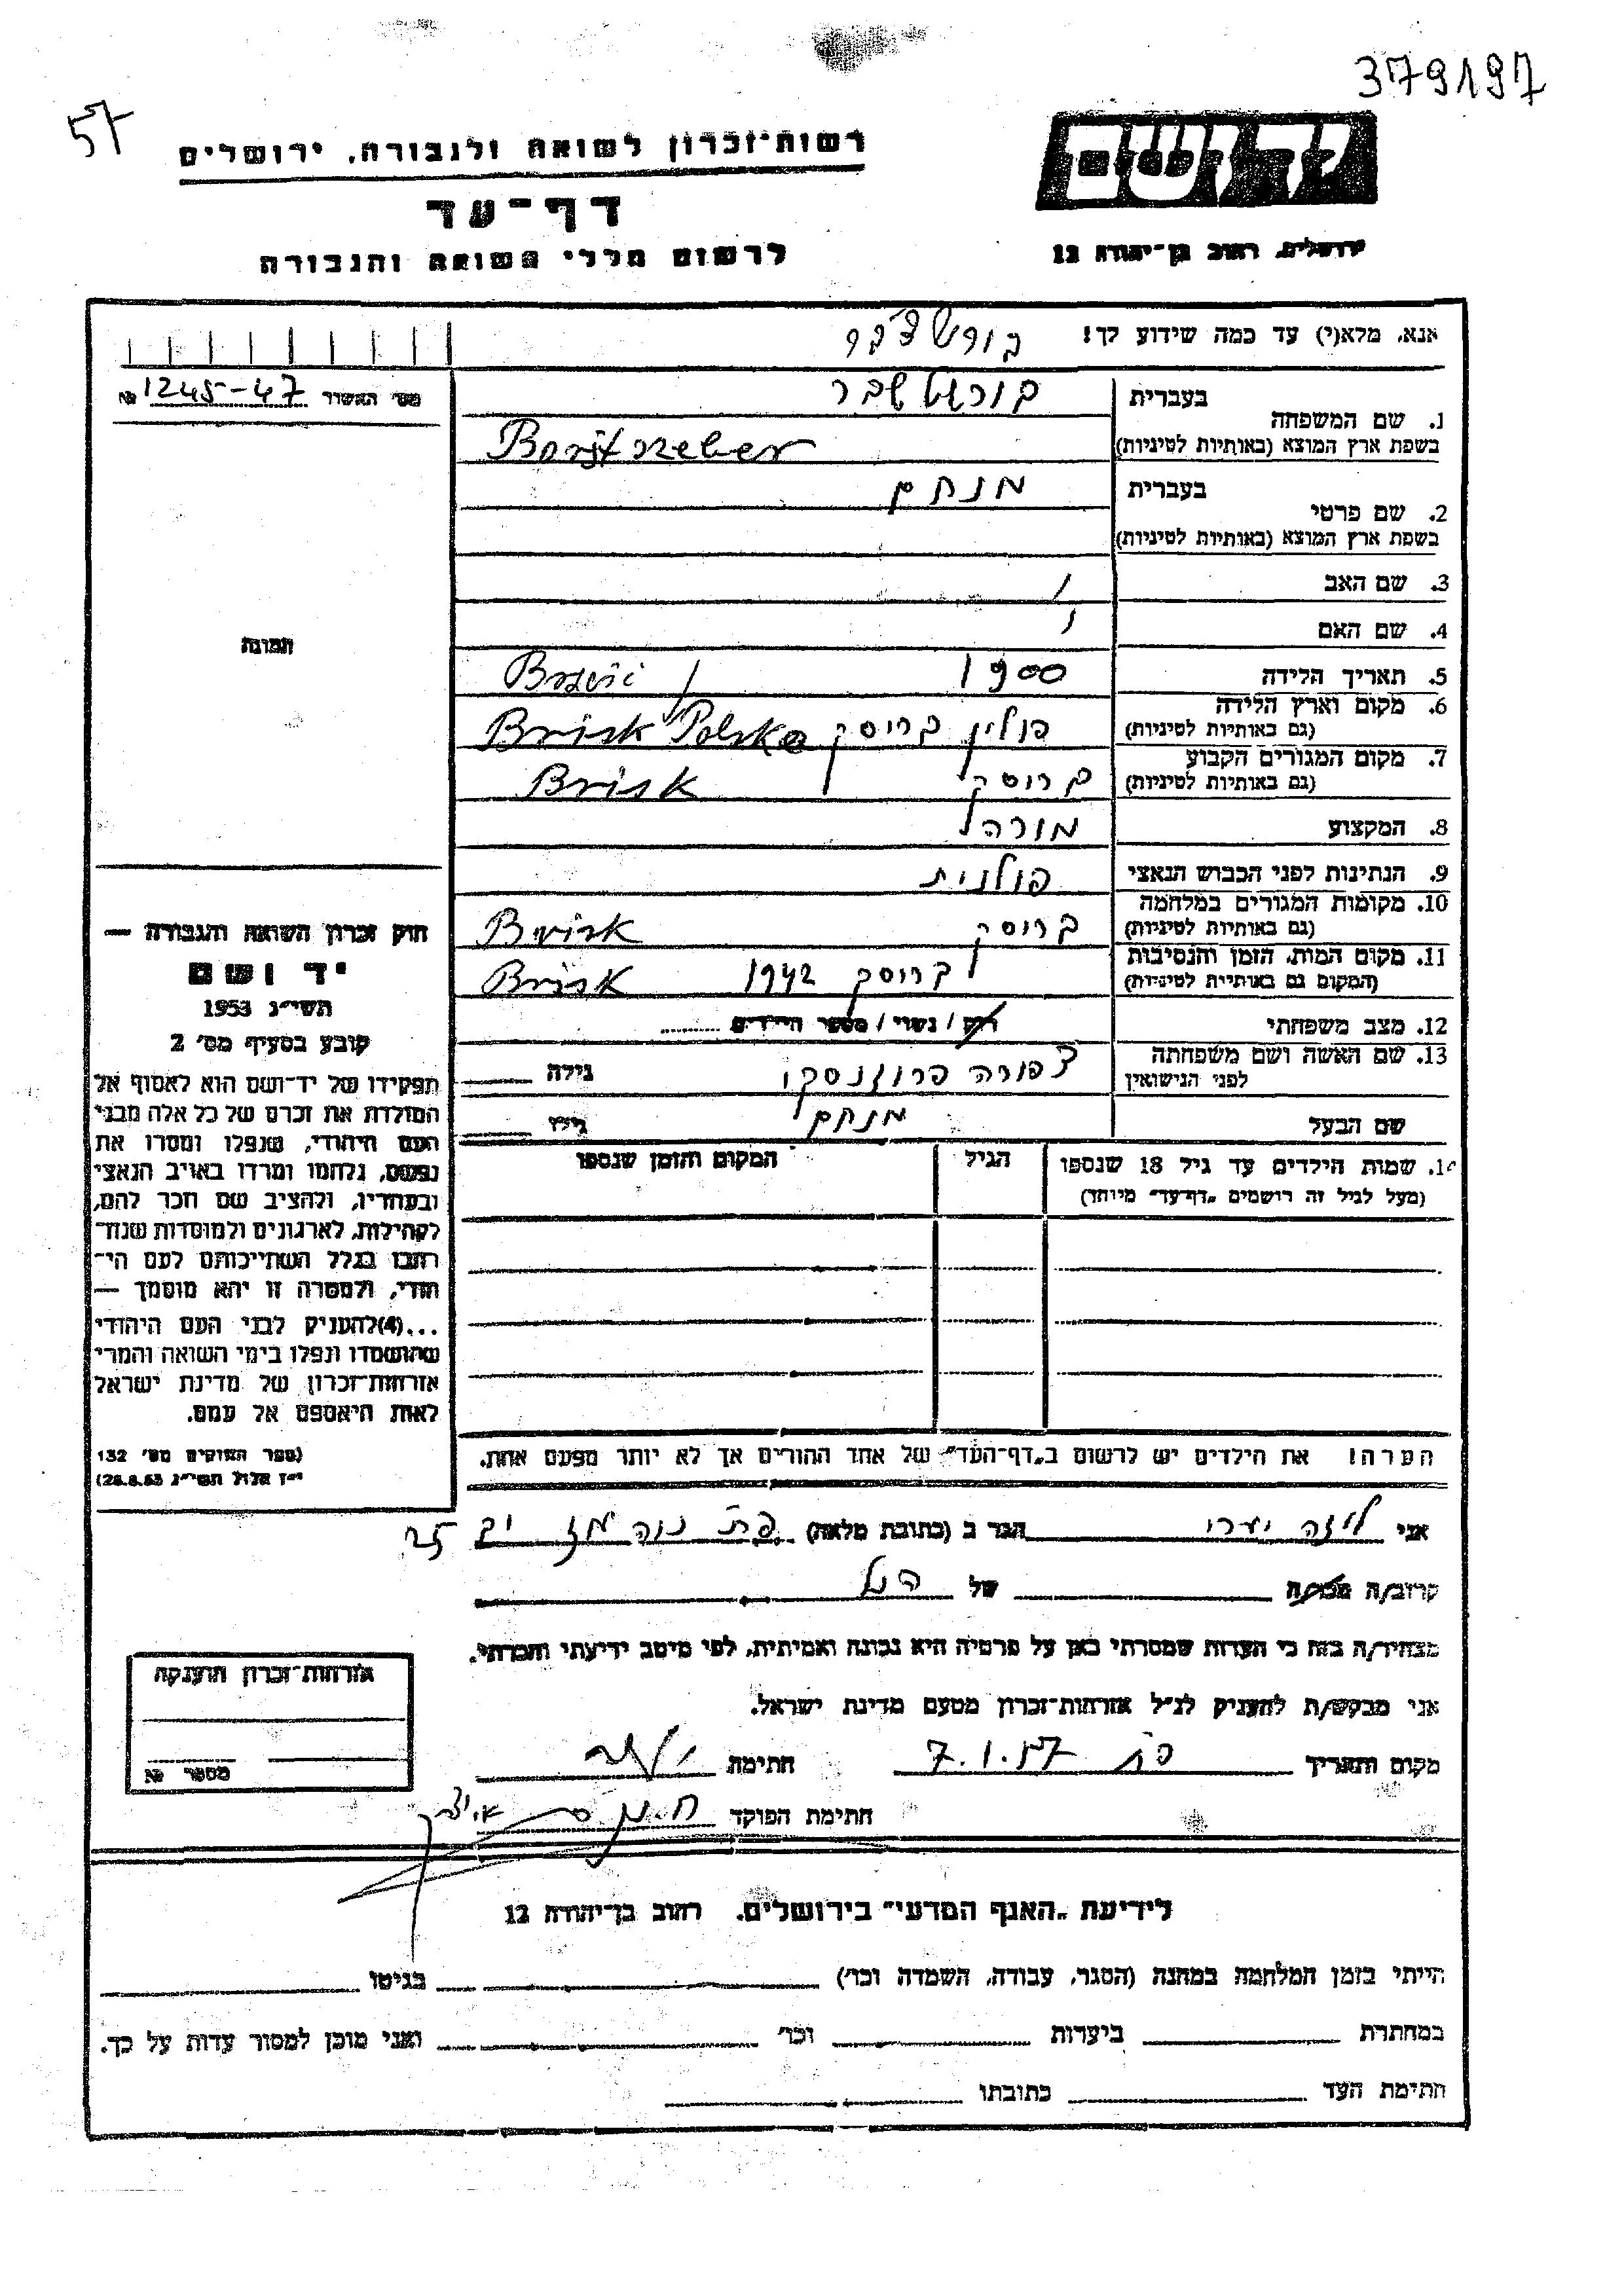 379197
57
יד ושם
רשות־זכרון לשואה ולגבורה, ירושלים
דף־עד
לרשום חללי השואה והגבורה
ירושלים, רחוב בן־יהודה 12
אנא, מלא(י) עד כמה שידוע לך!
מס׳ האשור 1245-47 №
1. שם המשפחה
בעברית
בשפת ארץ המוצא (באותיות לטיניות) Borjtszeber
2. שם פרטי
בעברית מנחם
בשפת ארץ המוצא (באותיות לטיניות)
3. שם האב
4. שם האם
5. תאריך הלידה 1900
6. מקום וארץ הלידה פולין בריסק Brisk Polska
(גם באותיות לטיניות)
7. מקום המגורים הקבוע בריסק Brisk
(גם באותיות לטיניות)
8. המקצוע
9. הנתינות לפני הכבוש הנאצי פולנית
10. מקומות המגורים במלחמה בריסק Brisk
(גם באותיות לטיניות)
11. מקום המות, הזמן והנסיבות בריסק 1942 Brisk
(המקום גם באותיות לטיניות)
12. מצב משפחתי רווק / נשוי / מספר הילדים
13. שם האשה ושם משפחתה צפורה פרוזנסקי גילה
לפני הנישואין
שם הבעל מנחם גילו
14. שמות הילדים עד גיל 18 שנספו הגיל המקום והזמן שנספו
(מעל לגיל זה רושמים „דף־עד” מיוחד)
הערה! את הילדים יש לרשום ב„דף־העד” של אחד ההורים אך לא יותר מפעם אחת.
תמונה
חוק זכרון השואה והגבורה —
יד ושם
תשי״ג 1953
קובע בסעיף מס׳ 2
תפקידו של יד־ושם הוא לאסוף אל
המולדת את זכרם של כל אלה מבני
העם היהודי, שנפלו ומסרו את
נפשם, נלחמו ומרדו באויב הנאצי
ובעוזריו, ולהציב שם וזכר להם,
לקהילות, לארגונים ולמוסדות שנח־
רבו בגלל השתייכותם לעם הי־
הודי, ולמטרה זו יהא מוסמך —
...(4)להעניק לבני העם היהודי
שהושמדו ונפלו בימי השואה והמרי
אזרחות־זכרון של מדינת ישראל
לאות היאספם אל עמם.
(ספר החוקים מס׳ 132
י״ז אלול תשי״ג 28.8.53)
אני ליזה יערי הגר ב (כתובת מלאה) פ״ת נוה עוז
קרוב/ה מכר/ה של הנ״ל
מצהיר/ה בזה כי העדות שמסרתי כאן על פרטיה היא נכונה ואמיתית, לפי מיטב ידיעתי והכרתי.
אני מבקש/ת להעניק לנ״ל אזרחות־זכרון מטעם מדינת ישראל.
מקום ותאריך פ״ת 7.1.57 חתימה
חתימת הפוקד
אזרחות־זכרון הוענקה
מספר №
לידיעת „האגף המדעי” בירושלים. רחוב בן־יהודה 12
הייתי בזמן המלחמה במחנה (הסגר, עבודה, השמדה וכו׳) בגיטו
במחתרת ביערות וכו׳ ואני מוכן למסור עדות על כך.
חתימת העד כתובתו